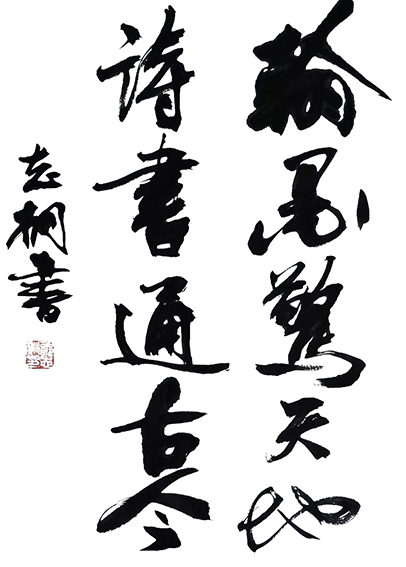 翰墨驚天地
詩書通古今
志桐書